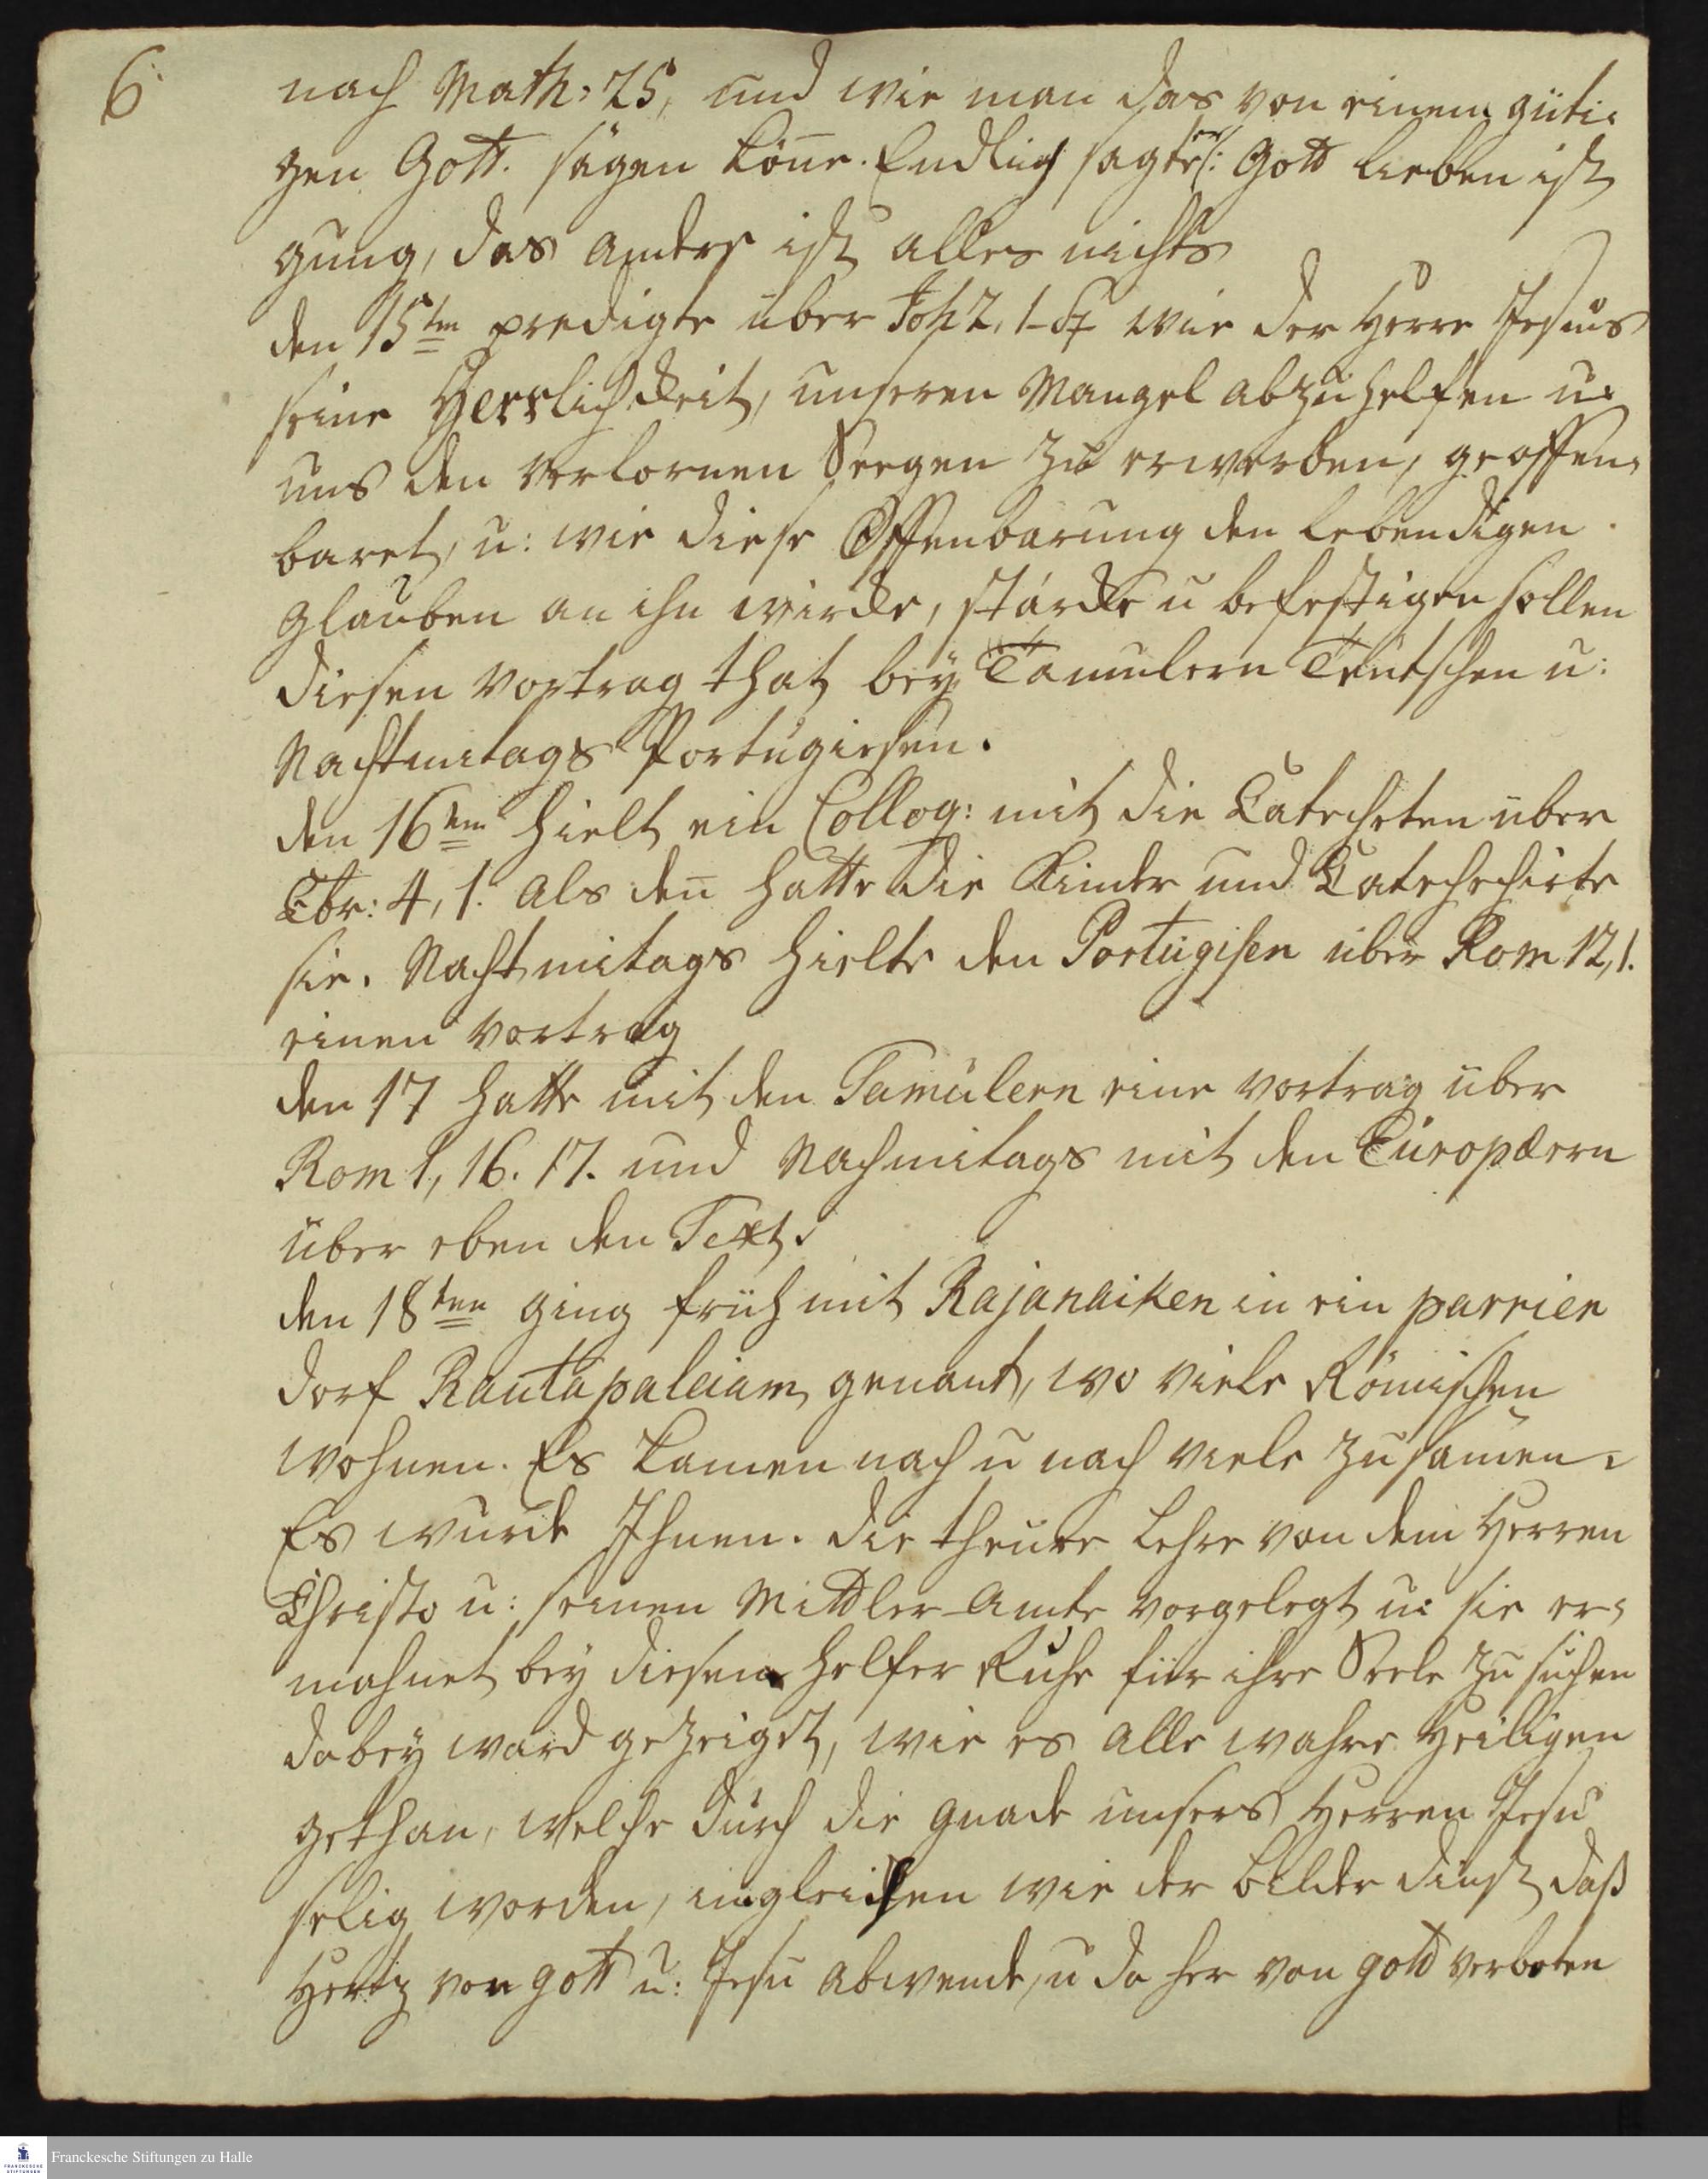 6.
nach Math: 25, und wie man das von einem güti-
gen Gott sagen köne. Endlich sagte er: Gott lieben ist
gnung, das andere ist alles nichts
den 15ten predigte über Joh 2, 1- wie der Herre Jesus
seine Herrlichkeit, unseren Mangel abzuhelfen u:
uns den verlornen Seegen zu erwerben, geoffen-
baret, u: wie diese Offenbarung den lebendigen
Glauben an ihn wircke, stärcke u befestigen sollen
diesen Vortrag that bey Tamulern Teutschen u:
Nachtmitags Portugiesen.
den 16ten hielt ein Colloq: mit die Catecheten über
Ebr: 4, 1. als deñ hatte die Kinder und Catechesirte
sie. Nachtmitags hielte den Portugisen über Rom 12, 1.
einen Vortrag
den 17 hatte mit den Tamulern eine Vortrag über
Rom 1, 16. 17. und Nachmitags mit den Europæern
über eben den Text.
den 18ten ging früh mit Rajanaiken in ein parrier
dorf Rautapaleiam genant, wo viele Römischen
wohnen. Es kamen nach u nach viele zusamen.
Es wurde Ihnen. die theure Lehre von dem Herren
Christo u: seinen Mittler-Amte vorgelegt u: sie er-
mahnet bey diesem Helfer Ruhe für ihre Seele zu suchen
dabey ward gezeiget, wie es alle wahre Heiligen
gethan, welche durch die gnade unsers Herren Jesu
selig worden, ingleichen wie der bilder dinst daß
Hertz von gott u: Jesu abwende, u daher von gott verboten
Franckesche Stiftungen zu Halle